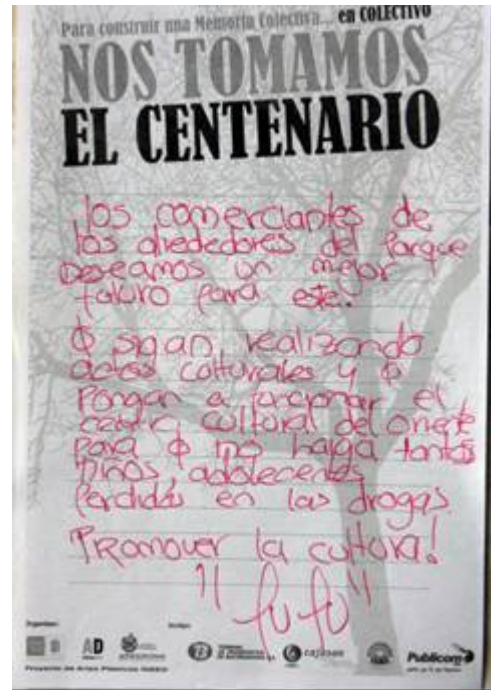 Para construir una Memoria Colectiva... en COLECTIVO
NOS TOMAMOS
EL CENTENARIO
los comerciantes de
los alrededores del Parque
Deseamos un mejor
futuro para este.
Φ sigan realizando
actos culturales y Φ
Pongan a funcionar el
centro cultural del oriente
Para Φ no haiga tantos
niños, adolecentes
Perdidos en las drogas.
PRomover la cultura!
"fufu"
AD
cajasan
Publicom
Proyecto de Artes Plásticas